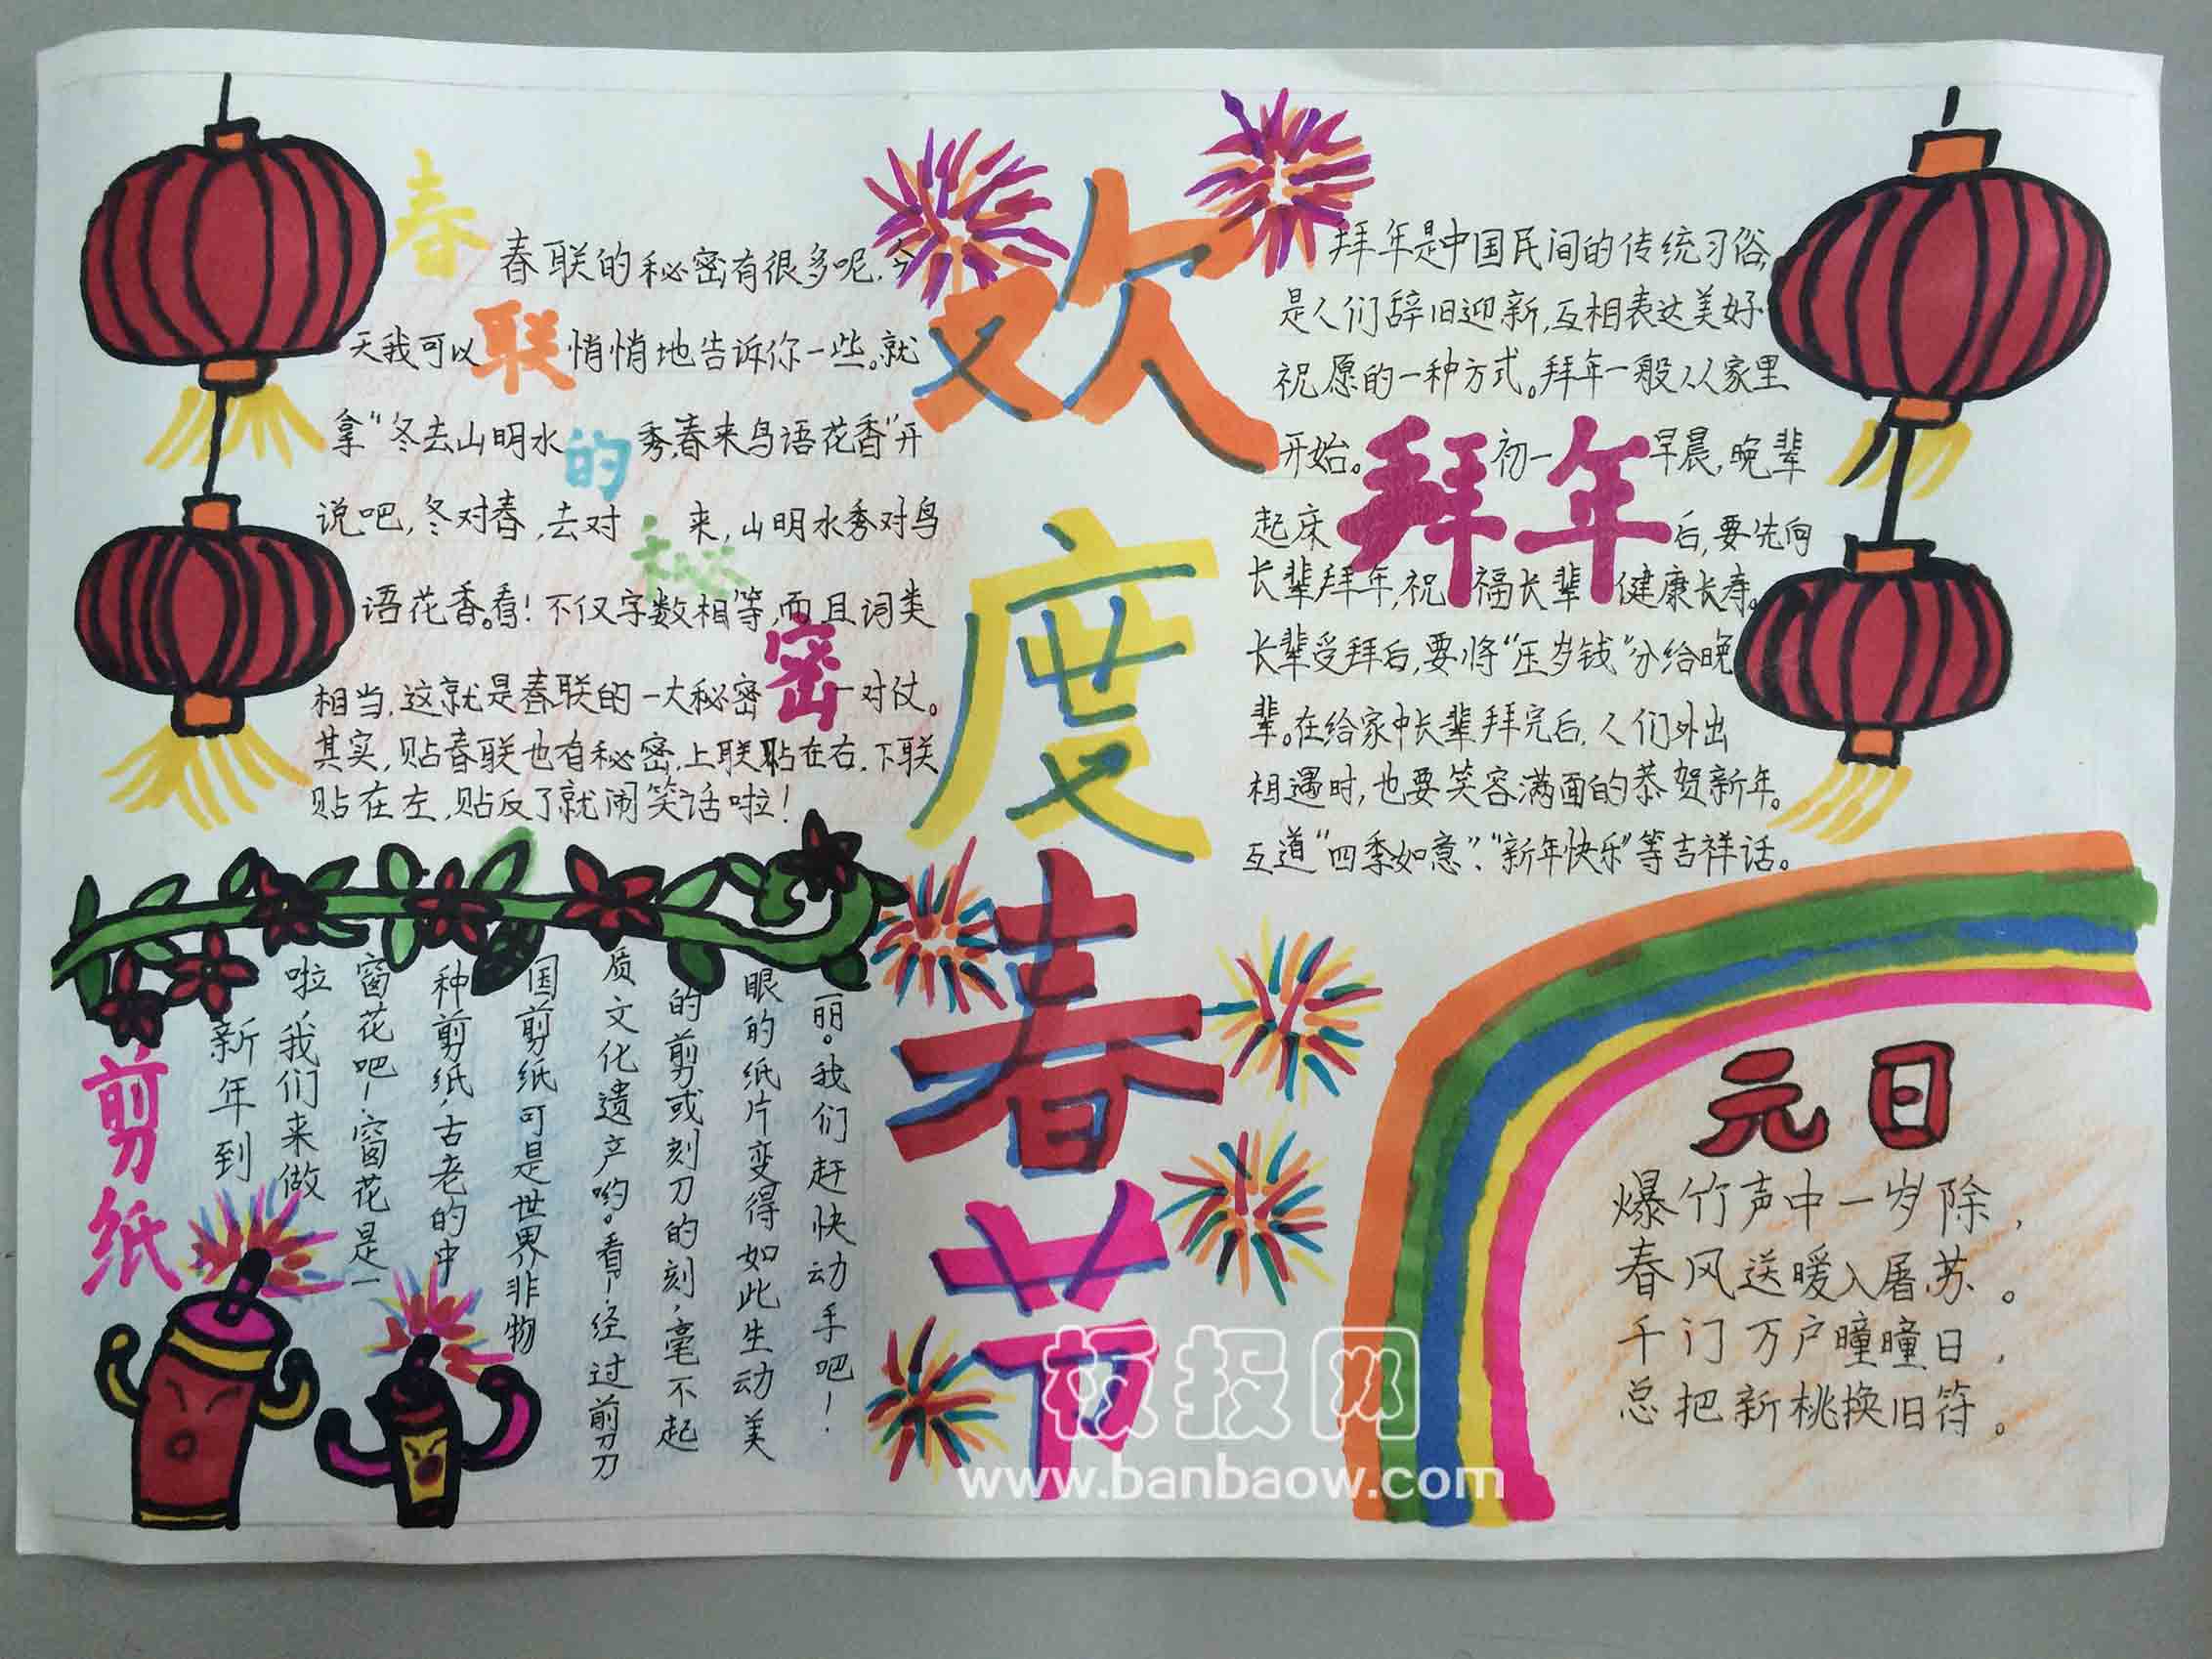 欢度春节
春联的秘密
春联的秘密有很多呢.今
天我可以悄悄地告诉你一些。就
拿“冬去山明水秀,春来鸟语花香”开
说吧,冬对春,去对来,山明水秀对鸟
语花香。看!不仅字数相等,而且词类
相当.这就是春联的一大秘密—对仗。
其实,贴春联也有秘密,上联贴在右.下联
贴在左,贴反了就闹笑话啦!
拜年
拜年是中国民间的传统习俗,
是人们辞旧迎新,互相表达美好
祝愿的一种方式。拜年一般从家里
开始。初一早晨,晚辈
起床后,要先向
长辈拜年,祝福长辈健康长寿。
长辈受拜后,要将“压岁钱”分给晚
辈。在给家中长辈拜完后,人们外出
相遇时,也要笑容满面的恭贺新年。
互道“四季如意”、“新年快乐”等吉祥话。
剪纸
新年到
啦,我们来做
窗花吧!窗花是一
种剪纸,古老的中
国剪纸可是世界非物
质文化遗产哟。看!经过剪刀
的剪或刻刀的刻,毫不起
眼的纸片变得如此生动美
丽。我们赶快动手吧!
元日
爆竹声中一岁除,
春风送暖入屠苏。
千门万户曈曈日,
总把新桃换旧符。
板报网
www.banbaow.com